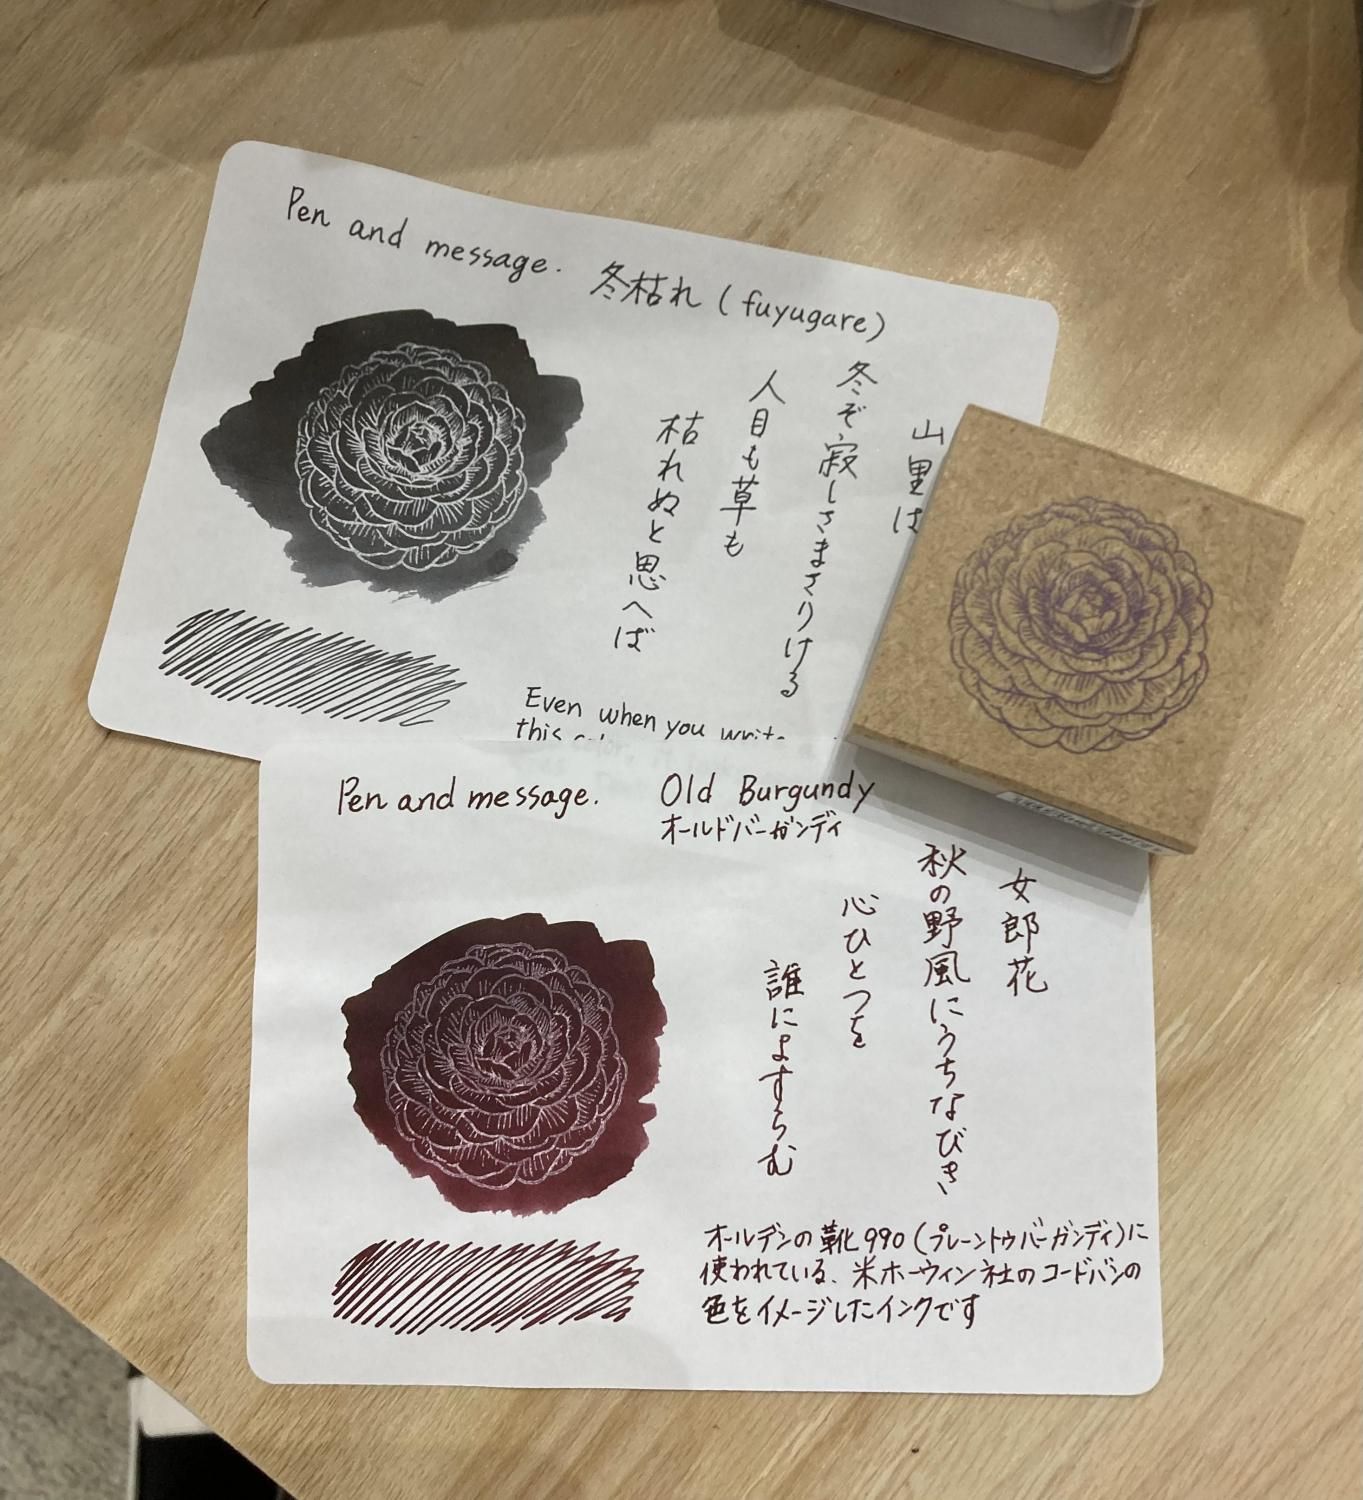 Pen and message. 冬枯れ (fuyugare)
山里は
冬ぞ寂しさまさりける
人目も草も
枯れぬと思へば
Even when you write
this
Pen and message. Old Burgundy
オールドバーガンディ
女郎花
秋の野風にうちなびき
心ひとつを
誰によすらむ
オールデンの靴990(プレーントゥバーガンディ)に
使われている、米ホーウィン社のコードバンの
色をイメージしたインクです